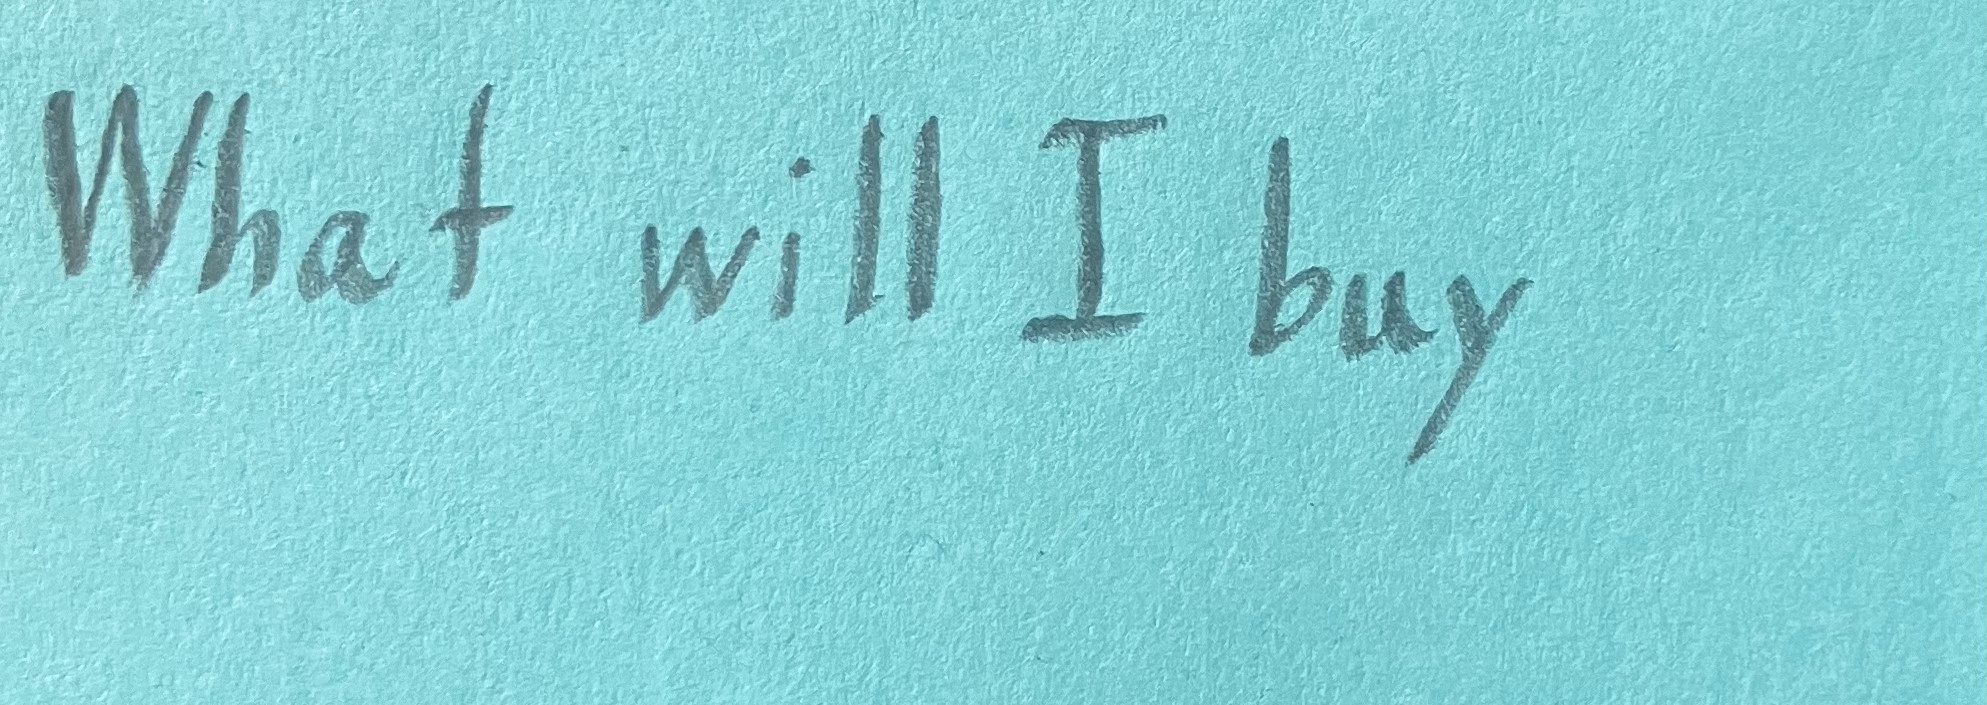 What will I buy